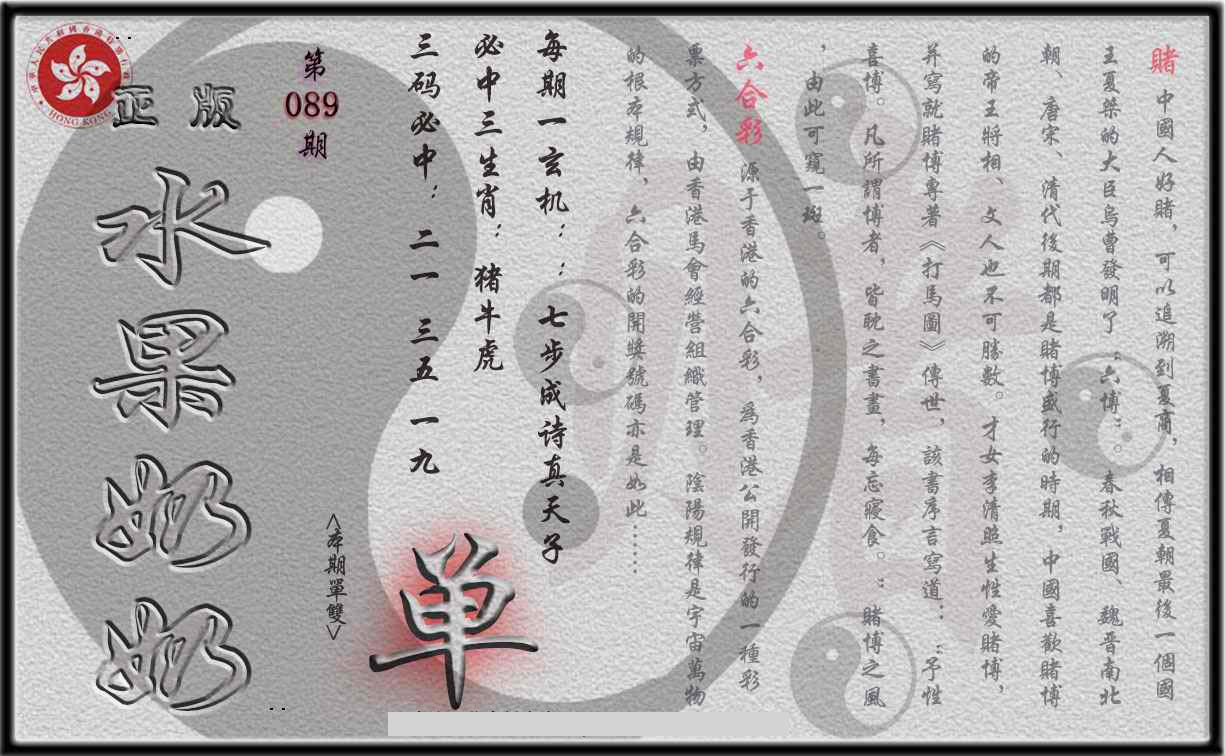 賭 中國人好賭，可以追溯到夏商，相傳夏朝最後一個國
王夏桀的大臣烏曹發明了“六博”。春秋戰國、魏晉南北
朝、唐宋、清代後期都是賭博盛行的時期，中國喜歡賭博
的帝王將相、文人也不可勝數。才女李清照生性愛賭博，
并寫就賭博專著《打馬圖》傳世，該書序言寫道：“予性
喜博。凡所謂博者，皆耽之晝晝，每忘寢食。”賭博之風
，由此可窺一斑。
六合彩 源于香港的六合彩，為香港公開發行的一種彩
票方式，由香港馬會經營組織管理。陰陽規律是宇宙萬物
的根本規律、六合彩的開獎號碼亦是如此……
每期一玄机：：七步成诗真天子
必中三生肖：猪牛虎
三码必中：二一 三五 一九
單
<本期單雙>
第
089
期
正版
水果奶奶
HONG KONG